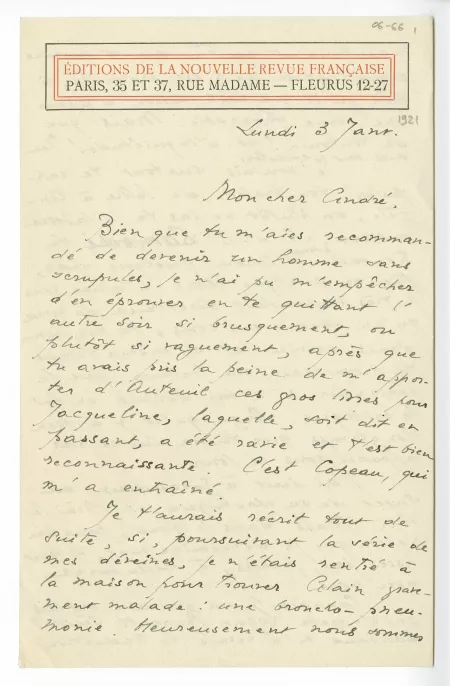 06-66 1
ÉDITIONS DE LA NOUVELLE REVUE FRANÇAISE
PARIS, 35 ET 37, RUE MADAME — FLEURUS 12-27
1921
Lundi 3 Janv.
Mon cher André.
Bien que tu m'aies recomman-
dé de devenir un homme sans
scrupules, je n'ai pu m'empêcher
d'en éprouver en te quittant l'
autre soir si brusquement, ou
plutôt si vaguement, après que
tu avais pris la peine de m'appor-
ter d'Auteuil ces gros livres pour
Jacqueline, laquelle, soit dit en
passant, a été ravie et t'est bien
reconnaissante. C'est Copeau, qui
m'a entraîné.
Je t'aurais récrit tout de
suite, si, poursuivant la série de
mes déveines, je n'étais rentré à
la maison pour trouver Alain grave-
ment malade : une broncho-pneu-
monie. Heureusement nous sommes